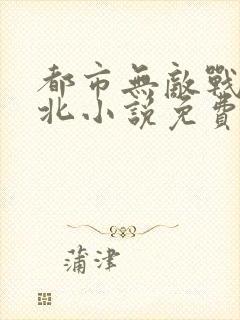 都市無敵戰
北小說免費
蒲津